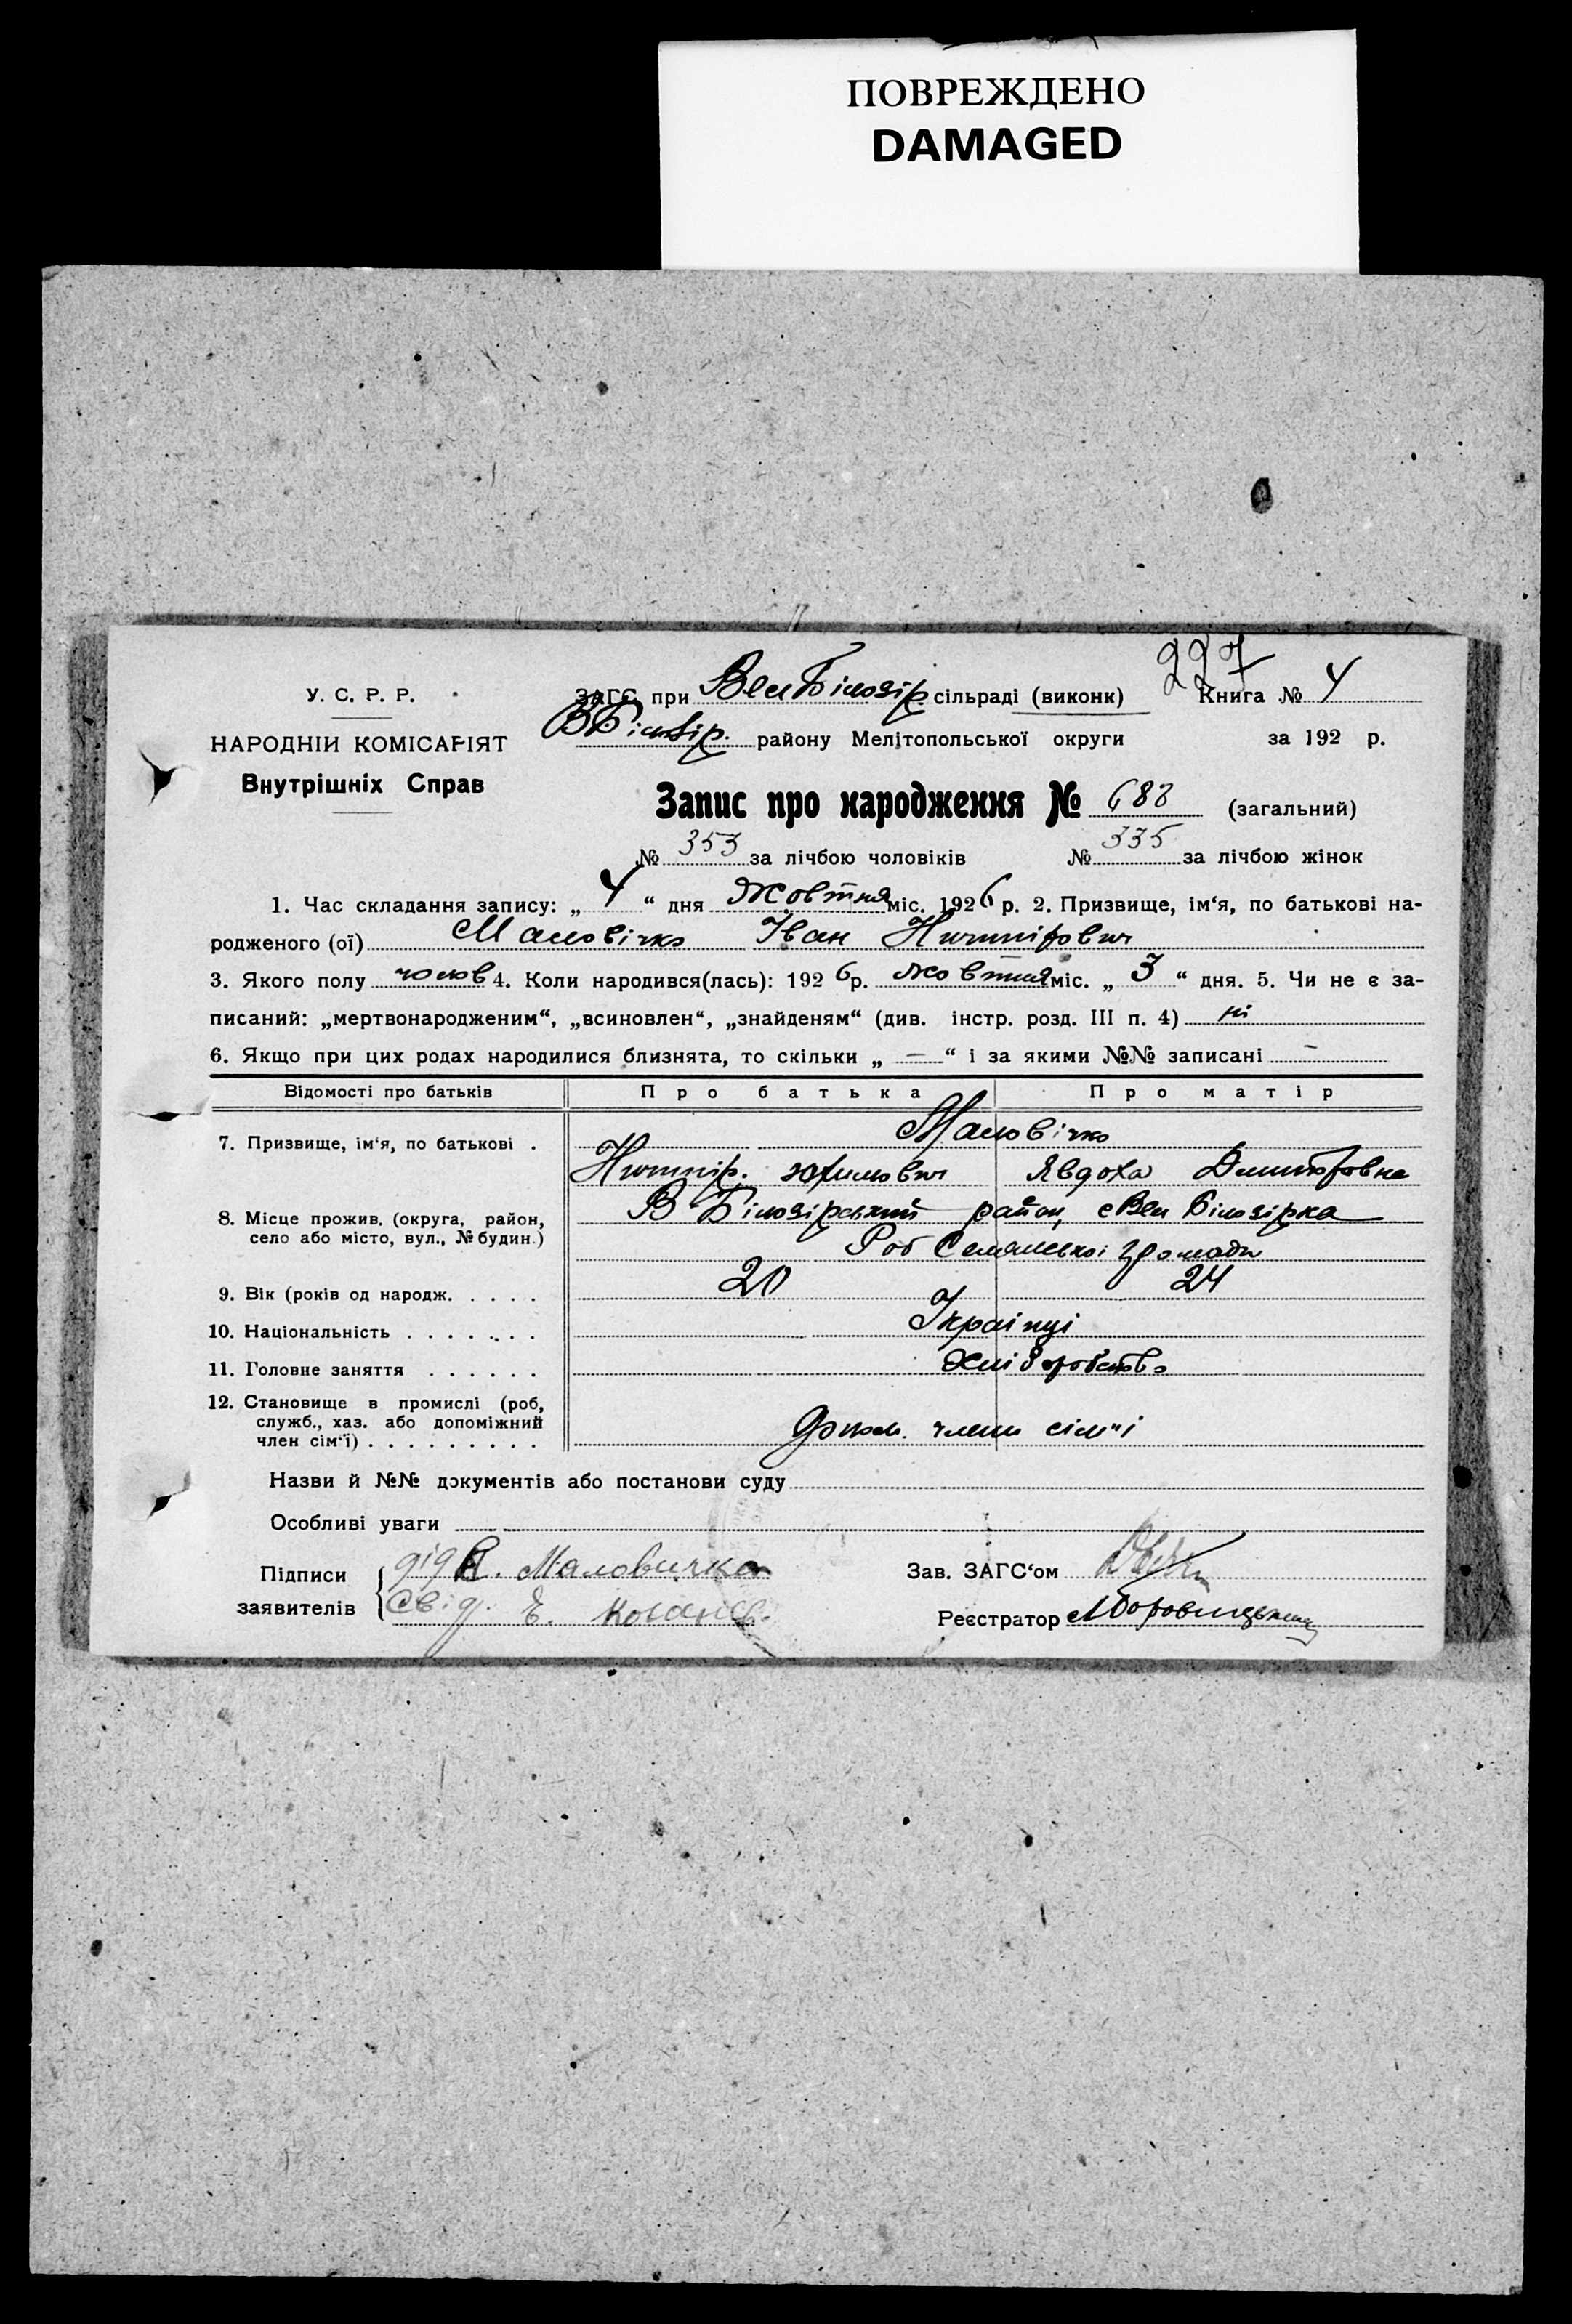 ПОВРЕЖДЕНО
DAMAGED
227
У. С. Р. Р.
ЗАГС при Вел Білозір. сільраді (виконк) Книга № 4
НАРОДНІЙ КОМІСАРІЯТ
В Білозір. району Мелітопольської округи за 192 р.
Внутрішніх Справ
Запис про народження № 688 (загальний)
№ 353 за лічбою чоловіків № 335 за лічбою жінок
1. Час складання запису: „ 4 “ дня Жовтня міс. 1926 р. 2. Призвище, ім‘я, по батькові на-
родженого (ої) Маловічко Іван Никипірович
3. Якого полу чолов 4. Коли народився(лась): 1926 р. жовтня міс. „ 3 “ дня. 5. Чи не є за-
писаний: „мертвонародженим“, „всиновлен“, „знайденям“ (див. інстр. розд. III п. 4) ні
6. Якщо при цих родах народилися близнята, то скільки „ — “ і за якими №№ записані —
Відомості про батьків Про батька Про матір
7. Призвище, ім‘я, по батькові . Маловічко
Никипір. Явдоха Дмитровна
8. Місце прожив. (округа, район,
село або місто, вул., № будин.)
В-Білозірський район, с Вел Білозірка
Роб громади
9. Вік (років од народж. . . . . 20 24
10. Національність . . . . . . . Українці
11. Головне заняття . . . . . . Хліборобство
12. Становище в промислі (роб,
служб., хаз. або допоміжний
член сім‘ї) . . . . . . . . . допом. члени сім"і
Назви й №№ документів або постанови суду
Особливі уваги
Підписи
заявителів
дід Маловичка
Свід. Е.
Зав. ЗАГС‘ом
Реєстратор